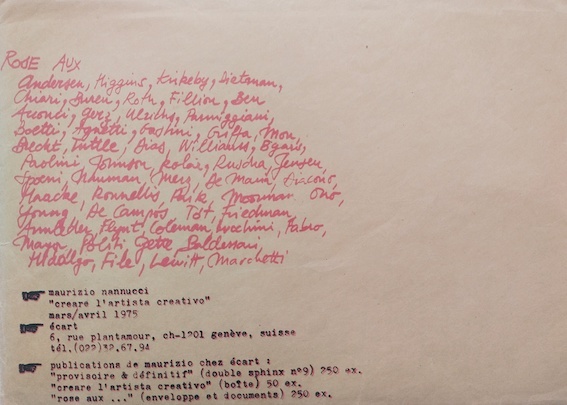 ROSE AUX
Andersen, Higgins, Kirkeby, Dietman,
Chiari, Buren, Roth, Fillion, Ben
Acconci, Gerz, Ulrichs, Parmiggiani,
Boetti, Agnetti, Gastini, Griffa, Mon,
Brecht, Tuttle, Dias, Williams, Bgars,
Paolini, Johnson, Kolar, Ruscha, Jensen,
Spoerri, Nauman, Merz, De Maria, Diacono,
Haacke, Kounellis, Paik, Moorman, Ono,
Young, De Campos, Tót, Friedman,
Armleder, Flynt, Coleman, Lucchini, Fabro,
Mayor, Politi, Gette, Baldessari,
Hidalgo, File, Lewitt, Marchetti
maurizio nannucci
"creare l'artista creativo"
mars/avril 1975
écart
6, rue plantamour, ch-1201 genève, suisse
tél.(022)32.67.94
publications de maurizio chez écart :
"provisoire & définitif" (double sphinx n°9) 250 ex.
"creare l'artista creativo" (boîte) 50 ex.
"rose aux ..." (enveloppe et documents) 250 ex.